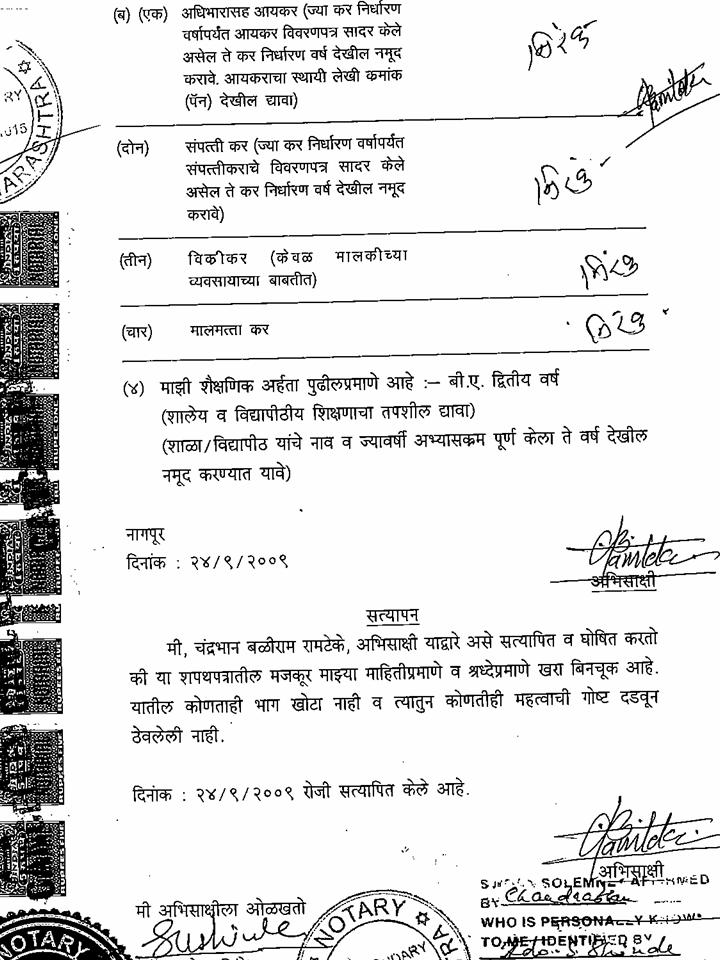 (ब) (एक) अधिभारासह आयकर (ज्या कर निर्धारण
वर्षापर्यंत आयकर विवरणपत्र सादर केले
असेल ते कर निर्धारण वर्ष देखील नमूद
करावे. आयकराचा स्थायी लेखी कमांक
(पॅन) देखील द्यावा)
निरंक
(दोन) संपत्ती कर (ज्या कर निर्धारण वर्षापर्यंत
संपत्तीकराचे विवरणपत्र सादर केले
असेल ते कर निर्धारण वर्ष देखील नमूद
करावे)
निरंक
(तीन) विकीकर (केवळ मालकीच्या
व्यवसायाच्या बाबतीत)
निरंक
(चार) मालमत्ता कर
निरंक
(४) माझी शैक्षणिक अर्हता पुढीलप्रमाणे आहे :— बी.ए. द्वितीय वर्ष
(शालेय व विद्यापीठीय शिक्षणाचा तपशील द्यावा)
(शाळा/विद्यापीठ यांचे नाव व ज्यावर्षी अभ्यासकम पूर्ण केला ते वर्ष देखील
नमूद करण्यात यावे)
नागपूर
दिनांक : २४/९/२००९
अभिसाक्षी
सत्यापन
मी, चंद्रभान बळीराम रामटेके, अभिसाक्षी याद्वारे असे सत्यापित व घोषित करतो
की या शपथपत्रातील मजकूर माझ्या माहितीप्रमाणे व श्रध्देप्रमाणे खरा बिनचूक आहे.
यातील कोणताही भाग खोटा नाही व त्यातुन कोणतीही महत्वाची गोष्ट दडवून
ठेवलेली नाही.
दिनांक : २४/९/२००९ रोजी सत्यापित केले आहे.
अभिसाक्षी
मी अभिसाक्षीला ओळखतो
SOLEMN
BY Chandrabhan
WHO IS PERSONA
TO ME / IDENTIFIED BY
NOTARY
NOTARY